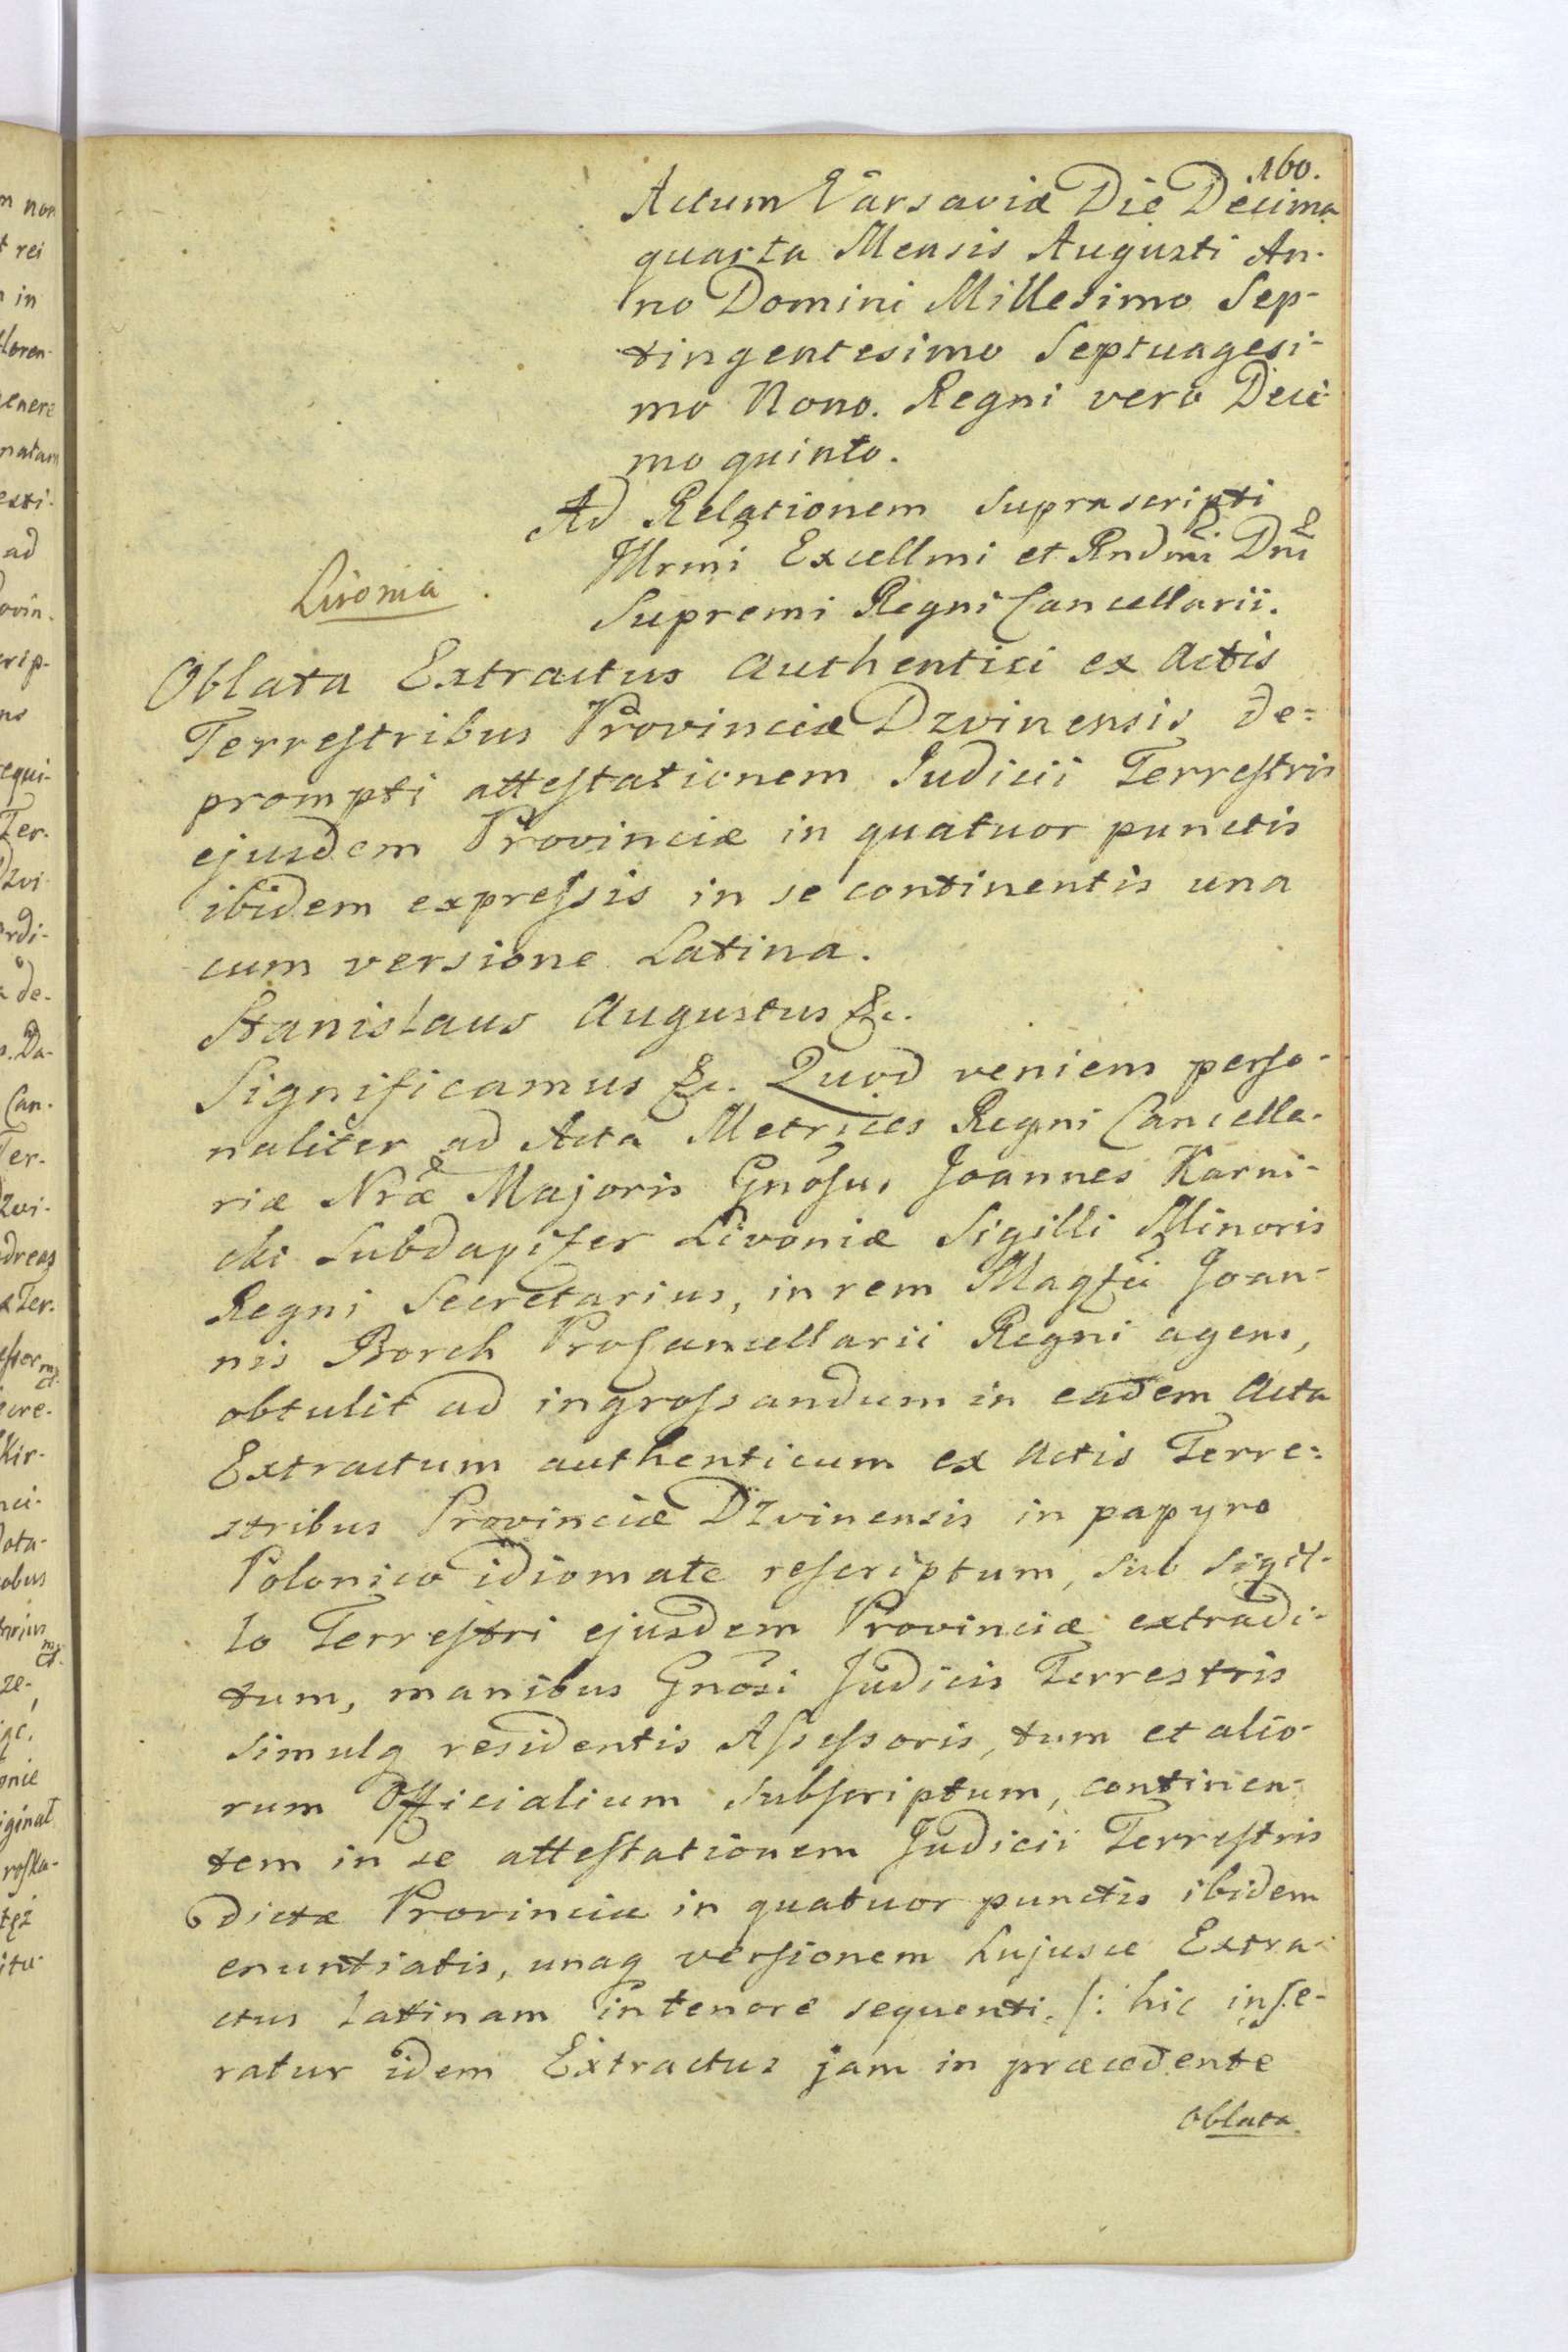 160.
Actum Varsaviæ Die Decima
quarta Mensis Augusti An-
no Domini Millesimo Sep-
tingentesimo Septuagesi-
mo Nono. Regni vero Deci-
mo quinto.
Ad Relationem suprascripti
Illrmi Excellmi et Rndmi Dni
Supremi Regni Cancellarii.
Livonia
Oblata Extractus Authentici ex Actis
Terrestribus Provinciæ Dzvinensis de=
prompti attestationem Judicii Terrestris
ejusdem Provinciæ in quatuor punctis
ibidem expressis in se continentis una
cum versione Latina.
Stanislaus Augustus &c.
Significamus &c. Quod veniens perso-
naliter ad Acta Metrices Regni Cancella-
riæ Nræ Majoris Gnosus Joannes Karni-
cki Subdapifer Livoniæ Sigilli Minoris
Regni Secretarius, in rem Magfci Joan-
nis Borch ProCancellarii Regni agens,
obtulit ad ingrossandum in eadem Acta
Extractum authenticum ex Actis Terre=
stribus Provinciæ Dzvinensis in papyro
Polonico idiomate rescriptum, sub sigil-
lo Terrestri ejusdem Provinciæ extradi-
tum, manibus Gnosi Judicis Terrestris
simulq residentis Assessoris, tum et alio-
rum Officialium subscriptum, continen-
tem in se attestationem Judicii Terrestris
dictæ Provinciæ in quatuor punctis ibidem
enuntiatis, unaq versionem hujusce Extra-
ctus latinam in tenore sequenti. /: hic inse-
ratur idem Extractus jam in præcedente
Oblata